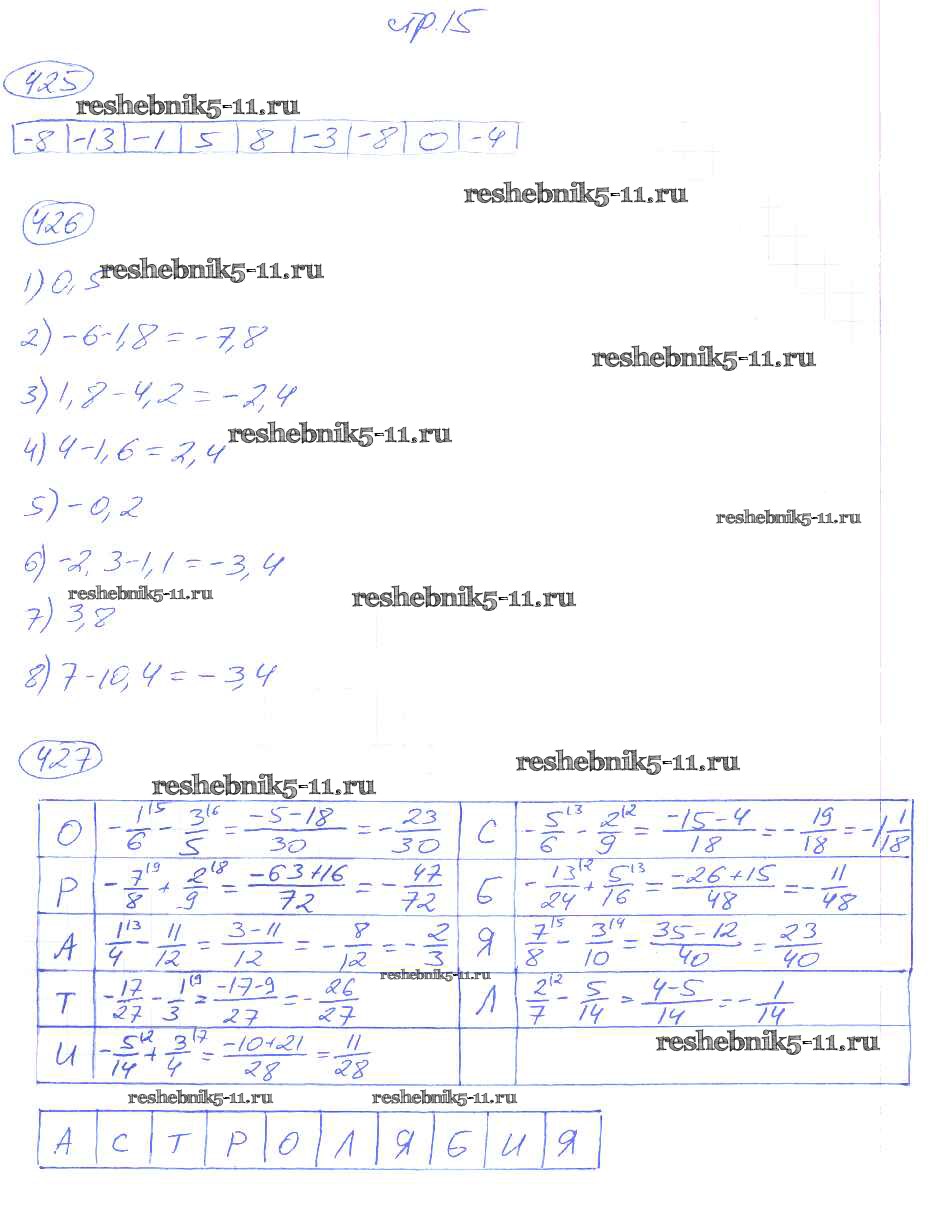 стр. 15
425
reshebnik5-11.ru
-8 | -13 | -1 | 5 | 8 | -3 | -8 | 0 | -4
reshebnik5-11.ru
426
reshebnik5-11.ru
1) 0,5
2) -6-1,8 = -7,8
reshebnik5-11.ru
3) 1,8-4,2 = -2,4
reshebnik5-11.ru
4) 4-1,6 = 2,4
5) -0,2
reshebnik5-11.ru
6) -2,3-1,1 = -3,4
reshebnik5-11.ru
reshebnik5-11.ru
7) 3,8
8) 7-10,4 = -3,4
427
reshebnik5-11.ru
reshebnik5-11.ru
О | -1/6 |5 - 3/5 |6 = (-5-18)/30 = -23/30 | С | -5/6 |3 - 2/9 |2 = (-15-4)/18 = -19/18 = -1 1/18
Р | -7/8 |9 + 2/9 |8 = (-63+16)/72 = -47/72 | Б | -13/24 |2 + 5/16 |3 = (-26+15)/48 = -11/48
А | 1/4 |3 - 11/12 = (3-11)/12 = -8/12 = -2/3 | Я | 7/8 |5 - 3/10 |4 = (35-12)/40 = 23/40
reshebnik5-11.ru
Т | -17/27 - 1/3 |9 = (-17-9)/27 = -26/27 | Л | 2/7 |2 - 5/14 = (4-5)/14 = -1/14
И | -5/14 |2 + 3/4 |7 = (-10+21)/28 = 11/28
reshebnik5-11.ru
reshebnik5-11.ru
reshebnik5-11.ru
А | С | Т | Р | О | Л | Я | Б | И | Я